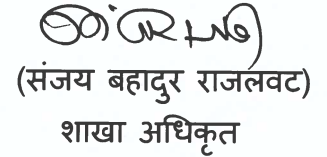 (संजय बहादुर राजलवट)
शाखा अधिकृत